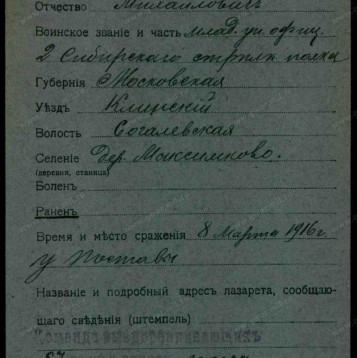 Отчество Михайловичъ
Воинское званіе и часть млад. ун. офиц.
2 Сибирскаго стрѣлк. полка
Губернія Московская
Уѣздъ Клинскій
Волость Согалевская
Селеніе Дер. Максимково.
(деревня, станица)
Боленъ
Раненъ
Время и мѣсто сраженія 8 Марта 1916 г.
у Поставы
Названіе и подробный адресъ лазарета, сообщаю-
щаго свѣдѣнія (штемпель)
Команда выздоравливающихъ